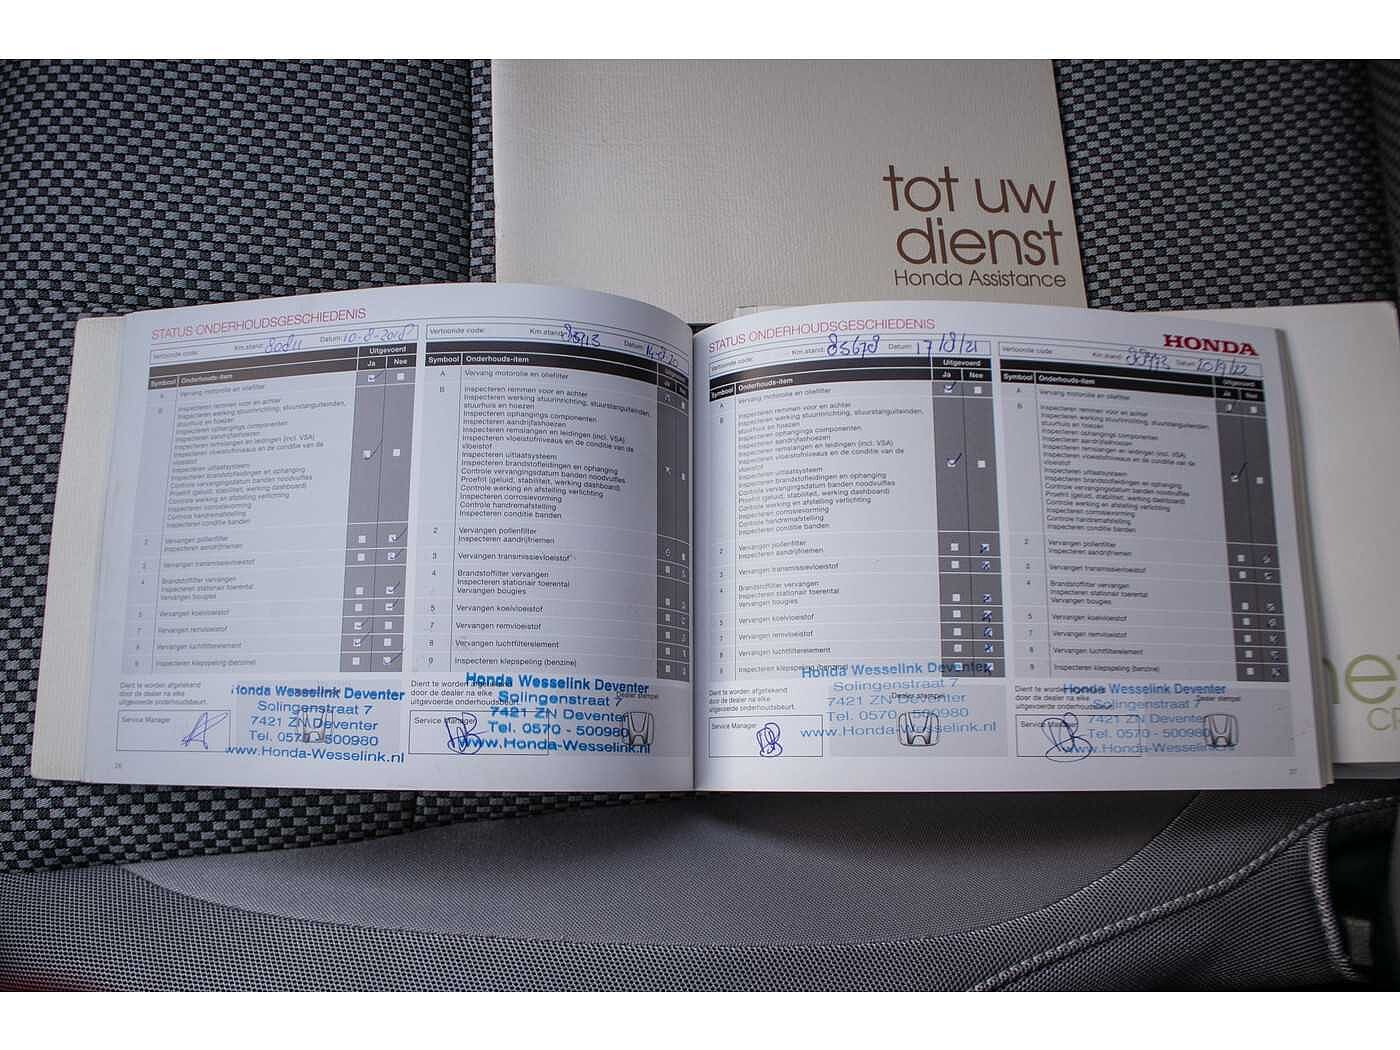 tot uw
dienst
Honda Assistance
STATUS ONDERHOUDSGESCHIEDENIS
Vertoonde code:
Km.stand: 80811
Datum: 10-8-2018
Uitgevoerd
Symbool Onderhouds-item Ja Nee
A Vervang motorolie en oliefilter
B Inspecteren remmen voor en achter
Inspecteren werking stuurinrichting, stuurstanguiteinden,
stuurhuis en hoezen
Inspecteren ophangings componenten
Inspecteren aandrijfashoezen
Inspecteren remslangen en leidingen (incl. VSA)
Inspecteren vloeistofniveaus en de conditie van de
vloeistof
Inspecteren uitlaatsysteem
Inspecteren brandstofleidingen en ophanging
Controle vervangingsdatum banden noodvulfles
Proefrit (geluid, stabiliteit, werking dashboard)
Controle werking en afstelling verlichting
Inspecteren corrosievorming
Controle handremafstelling
Inspecteren conditie banden
2 Vervangen pollenfilter
Inspecteren aandrijfriemen
3 Vervangen transmissievloeistof
4 Brandstoffilter vervangen
Inspecteren stationair toerental
Vervangen bougies
5 Vervangen koelvloeistof
7 Vervangen remvloeistof
8 Vervangen luchtfilterelement
9 Inspecteren klepspeling (benzine)
Dient te worden afgetekend
door de dealer na elke
uitgevoerde onderhoudsbeurt.
Service Manager
Honda Wesselink Deventer
Solingenstraat 7
7421 ZN Deventer
Tel. 0570 - 500980
www.Honda-Wesselink.nl
26
Vertoonde code:
Km.stand:
Datum:
Symbool Onderhouds-item
A Vervang motorolie en oliefilter
B Inspecteren remmen voor en achter
Inspecteren werking stuurinrichting, stuurstanguiteinden,
stuurhuis en hoezen
Inspecteren ophangings componenten
Inspecteren aandrijfashoezen
Inspecteren remslangen en leidingen (incl. VSA)
Inspecteren vloeistofniveaus en de conditie van de
vloeistof
Inspecteren uitlaatsysteem
Inspecteren brandstofleidingen en ophanging
Controle vervangingsdatum banden noodvulfles
Proefrit (geluid, stabiliteit, werking dashboard)
Controle werking en afstelling verlichting
Inspecteren corrosievorming
Controle handremafstelling
Inspecteren conditie banden
2 Vervangen pollenfilter
Inspecteren aandrijfriemen
3 Vervangen transmissievloeistof
4 Brandstoffilter vervangen
Inspecteren stationair toerental
Vervangen bougies
5 Vervangen koelvloeistof
7 Vervangen remvloeistof
8 Vervangen luchtfilterelement
9 Inspecteren klepspeling (benzine)
Dient te worden afgetekend
door de dealer na elke
uitgevoerde onderhoudsbeurt.
Dealer stempel
Service Manager
Honda Wesselink Deventer
Solingenstraat 7
7421 ZN Deventer
Tel. 0570 - 500980
www.Honda-Wesselink.nl
STATUS ONDERHOUDSGESCHIEDENIS
Vertoonde code:
Km.stand: 85678
Datum: 17/8/21
Uitgevoerd
Symbool Onderhouds-item Ja Nee
A Vervang motorolie en oliefilter
B Inspecteren remmen voor en achter
Inspecteren werking stuurinrichting, stuurstanguiteinden,
stuurhuis en hoezen
Inspecteren ophangings componenten
Inspecteren aandrijfashoezen
Inspecteren remslangen en leidingen (incl. VSA)
Inspecteren vloeistofniveaus en de conditie van de
vloeistof
Inspecteren uitlaatsysteem
Inspecteren brandstofleidingen en ophanging
Controle vervangingsdatum banden noodvulfles
Proefrit (geluid, stabiliteit, werking dashboard)
Controle werking en afstelling verlichting
Inspecteren corrosievorming
Controle handremafstelling
Inspecteren conditie banden
2 Vervangen pollenfilter
Inspecteren aandrijfriemen
3 Vervangen transmissievloeistof
4 Brandstoffilter vervangen
Inspecteren stationair toerental
Vervangen bougies
5 Vervangen koelvloeistof
7 Vervangen remvloeistof
8 Vervangen luchtfilterelement
9 Inspecteren klepspeling (benzine)
Dient te worden afgetekend
door de dealer na elke
uitgevoerde onderhoudsbeurt.
Dealer stempel
Service Manager
Honda Wesselink Deventer
Solingenstraat 7
7421 ZN Deventer
Tel. 0570 - 500980
www.Honda-Wesselink.nl
HONDA
Vertoonde code:
Km.stand:
Datum:
Uitgevoerd
Symbool Onderhouds-item Ja Nee
A Vervang motorolie en oliefilter
B Inspecteren remmen voor en achter
Inspecteren werking stuurinrichting, stuurstanguiteinden,
stuurhuis en hoezen
Inspecteren ophangings componenten
Inspecteren aandrijfashoezen
Inspecteren remslangen en leidingen (incl. VSA)
Inspecteren vloeistofniveaus en de conditie van de
vloeistof
Inspecteren uitlaatsysteem
Inspecteren brandstofleidingen en ophanging
Controle vervangingsdatum banden noodvulfles
Proefrit (geluid, stabiliteit, werking dashboard)
Controle werking en afstelling verlichting
Inspecteren corrosievorming
Controle handremafstelling
Inspecteren conditie banden
2 Vervangen pollenfilter
Inspecteren aandrijfriemen
3 Vervangen transmissievloeistof
4 Brandstoffilter vervangen
Inspecteren stationair toerental
Vervangen bougies
5 Vervangen koelvloeistof
7 Vervangen remvloeistof
8 Vervangen luchtfilterelement
9 Inspecteren klepspeling (benzine)
Dient te worden afgetekend
door de dealer na elke
uitgevoerde onderhoudsbeurt.
Dealer stempel
Service Manager
Honda Wesselink Deventer
Solingenstraat 7
7421 ZN Deventer
Tel. 0570 - 500980
www.Honda-Wesselink.nl
27